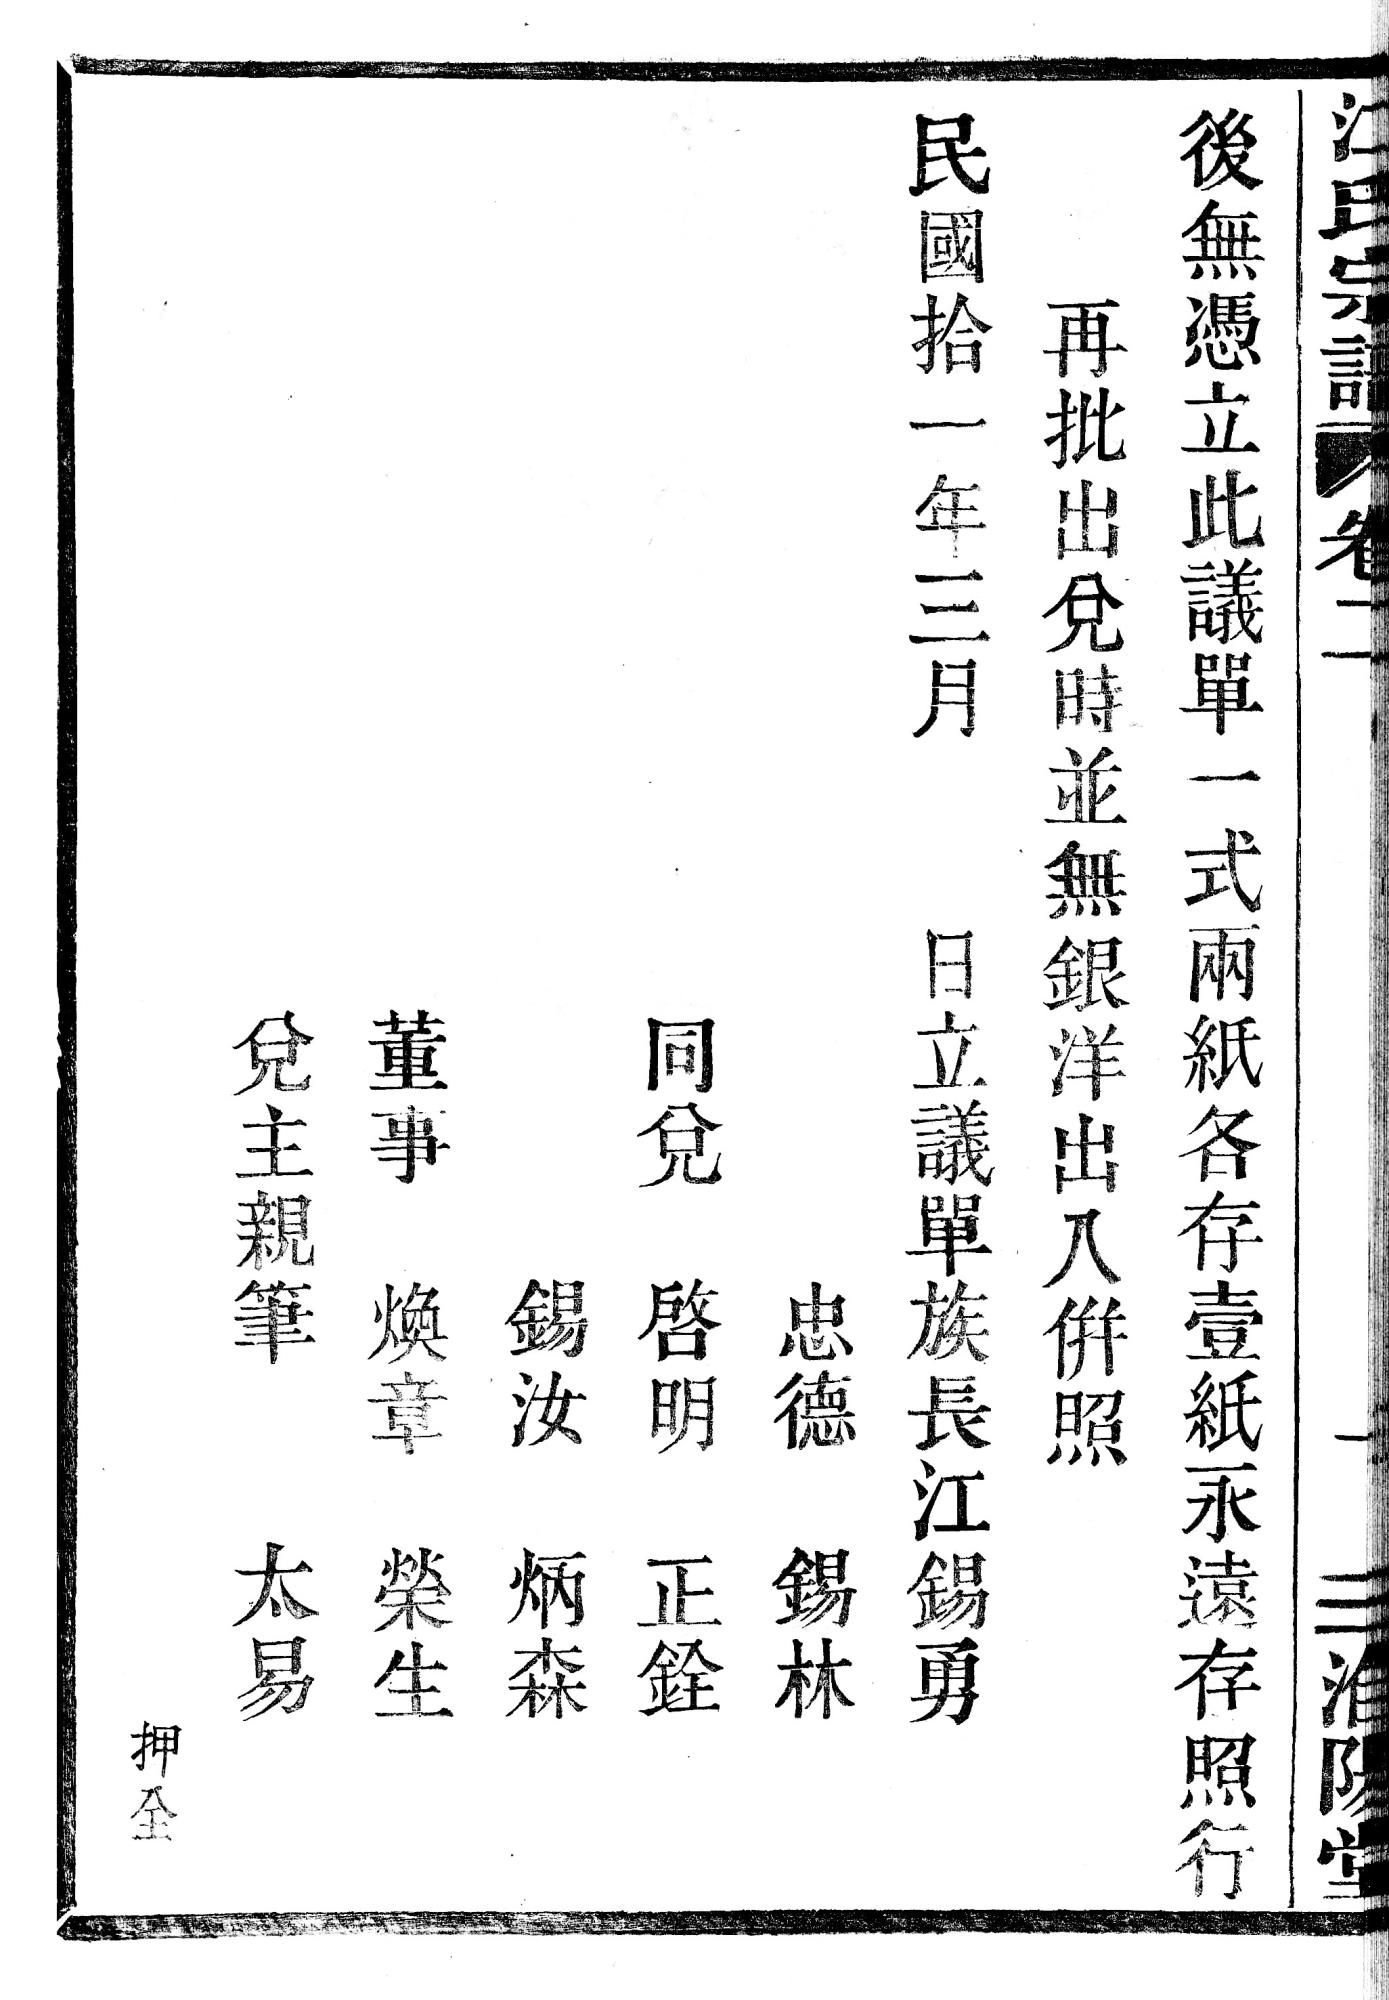 江氏宗譜 卷二 二 淮陽堂
後無憑立此議單一式兩紙各存壹紙永遠存照行
再批出兌時並無銀洋出入併照
民國拾一年三月 日立議單族長江錫勇
忠德 錫林
同兌 啓明 正銓
錫汝 炳森
董事 煥章 榮生
兌主親筆 太易
押全